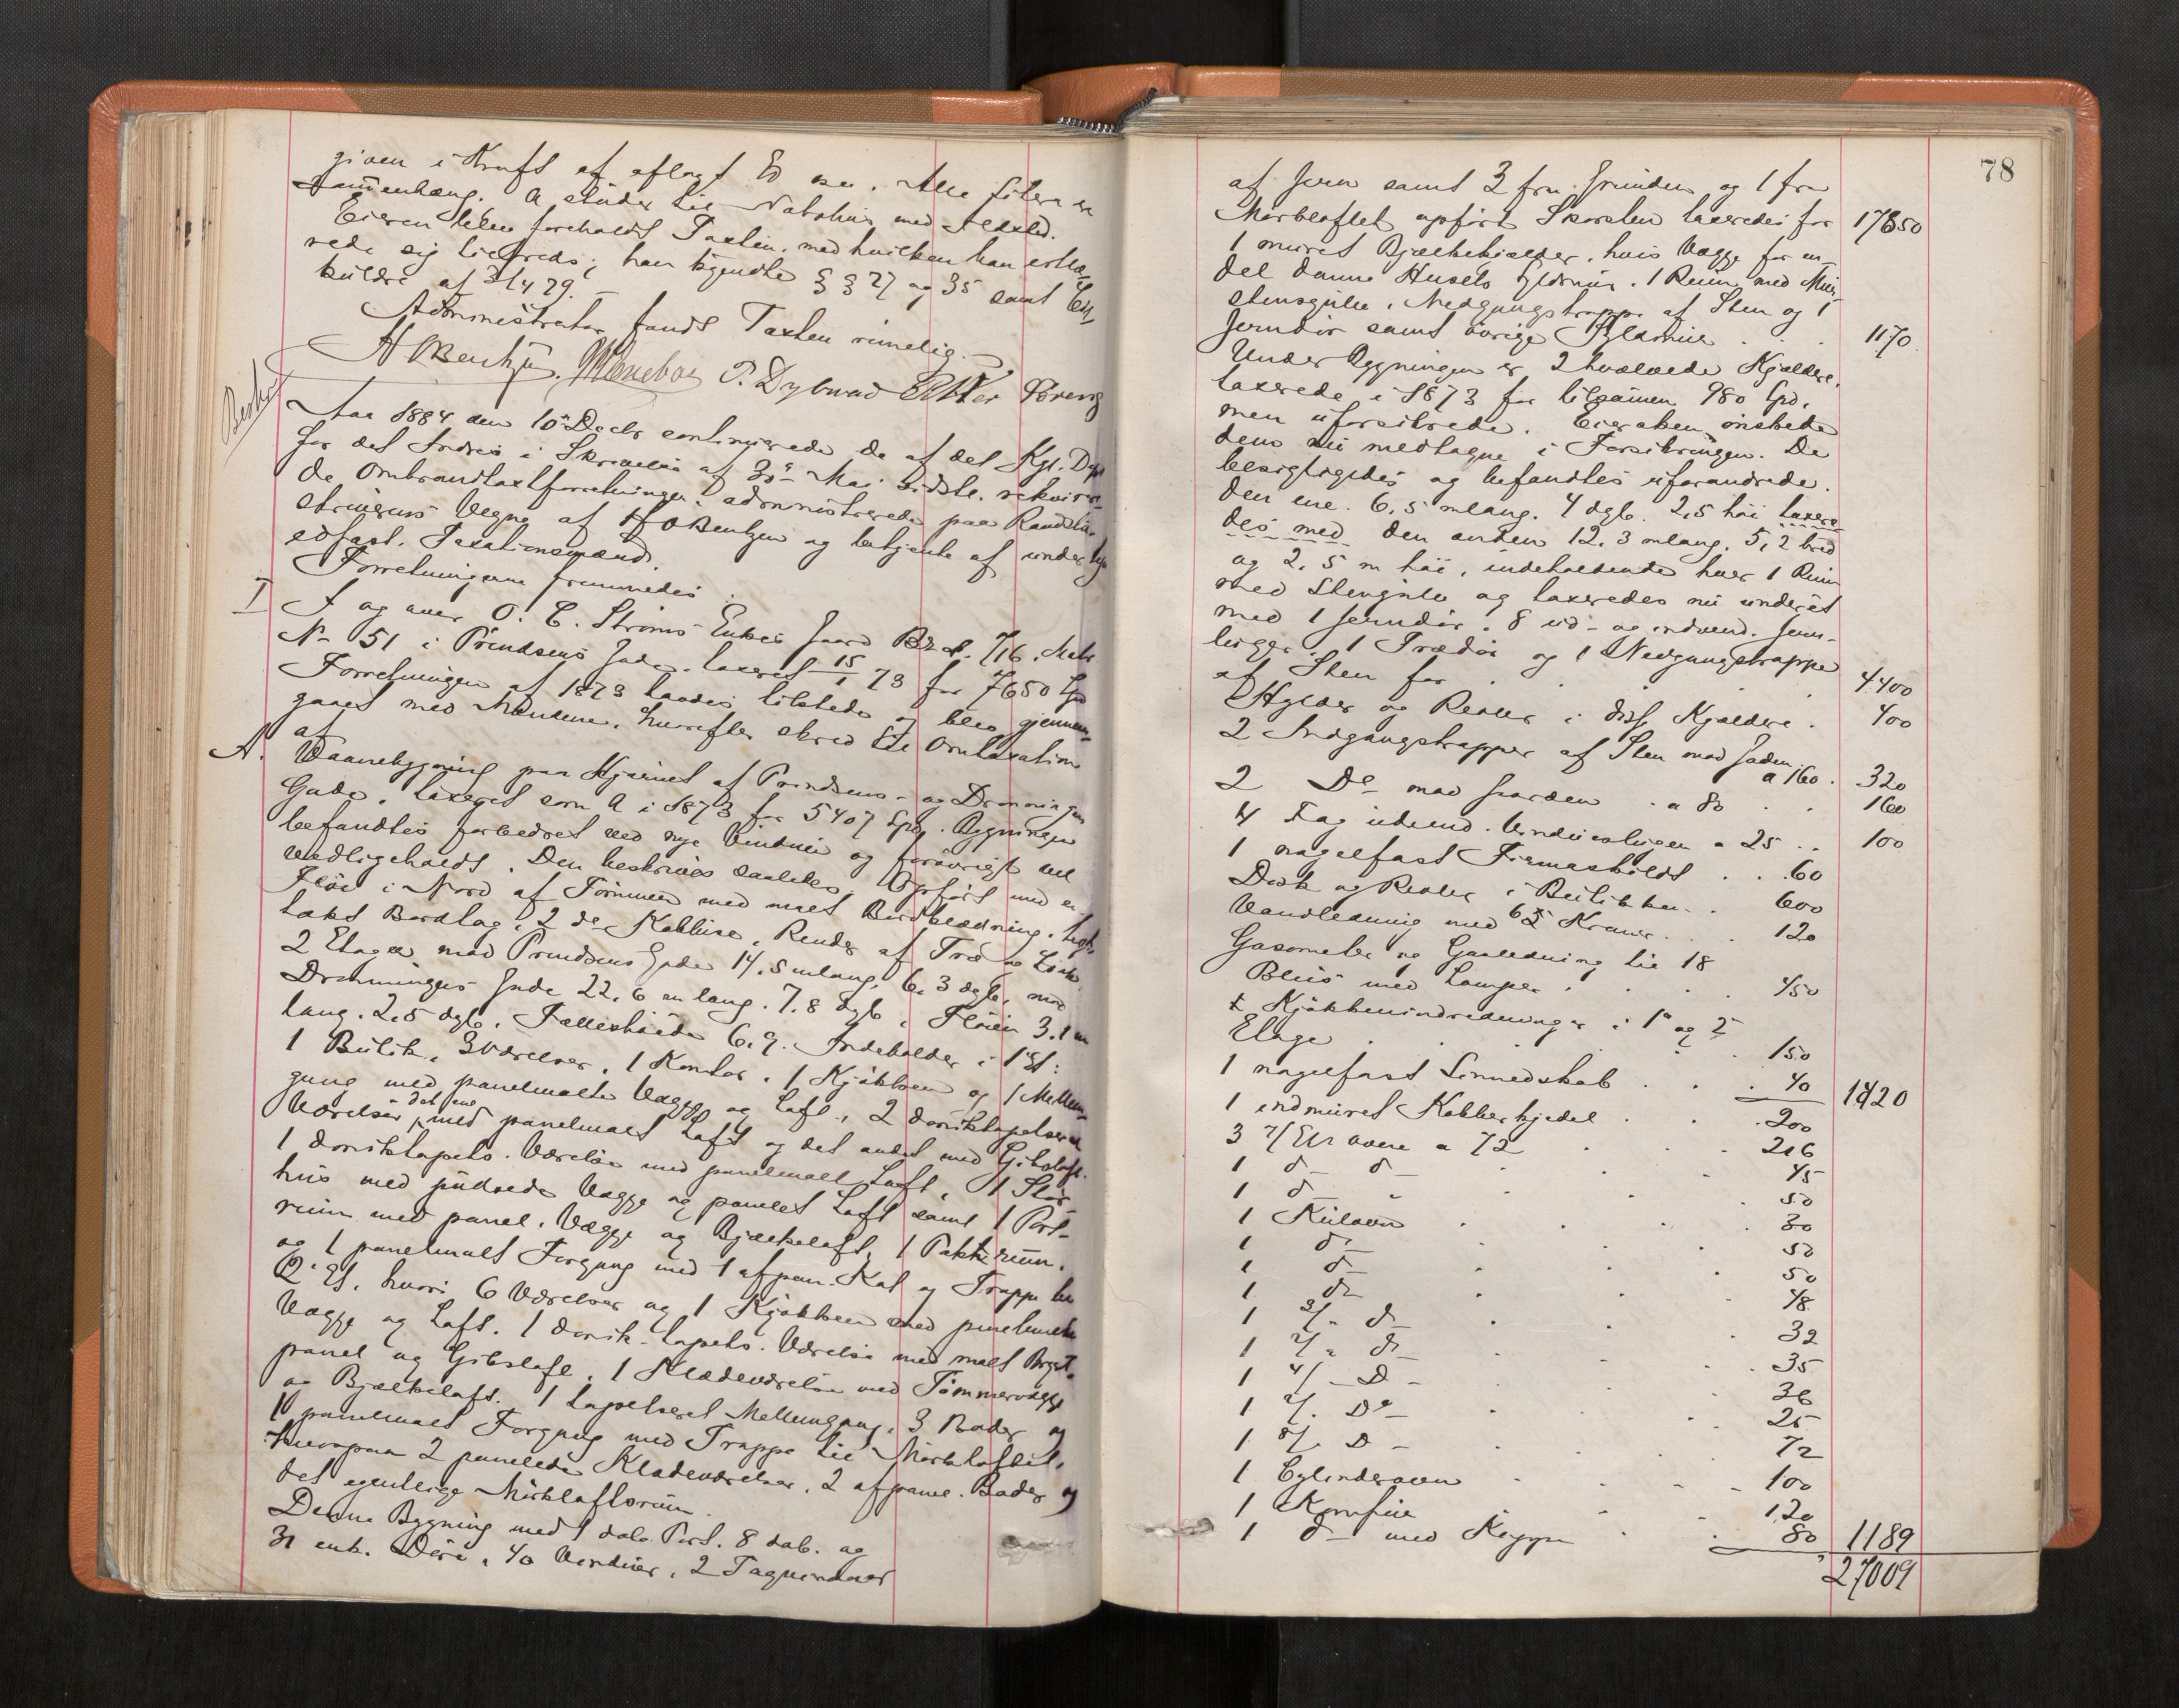 given i Kraft af aflagt Ed
sammenhæng. A støder til Nabohus med
Eieren blev foreholdt Taxten, med hvilken han erklæ-
rede sig tilfreds; han kjendte §§ 27 og 35 samt Cir-
kulære af 3/4 79.
Administrator fandt Taxten rimelig.
H Bentzen. P. Dybwad
Aar 1884 den 10de Decbr continuerede de af det Kgl. Dept
for det Indre i Skrivelse af 30te Mai sidstl. rekvirere-
de Ombrandtaxtforretninger, administrerede paa
Vegne af H Bentzen og betjente af under
edfast. Taxationsmænd.
Forretningerne fremmedes:
I I og over O. C. Strøms Enkes Gaard 716. Matr
No 51 i Prindsens Gade, taxeret 15/1 73 for 7650 Spd
Forretningen af 1873 havdes tilstede og blev gjennem-
gaaet med Mændene, hvorefter skred til Omtaxation
af
A. Vaanebygning paa Hjørnet af Prindsens- og Dronningens
Gade, taxeret som A i 1873 for 5407 Spd. Bygningen
befandtes forbedret ved nye Vinduer og forøvrigt vel
vedligeholdt. Den beskrives saaledes: Opført med en
Fløi i Nord af Tømmer med malt Bordklædning, tegl-
takt Bordtag, 2 Render af Træ og
2 Etager mod Prindsens Gade 14,5 m lang, 6,3 dyb, mod
Dronningens Gade 22,6 m lang, 7,8 dyb, Fløien 3,1 m
lang, 2,5 dyb. Fælleshøide 6,9. Indeholder i 1 Et:
1 Butik, 3 Værelser, 1 Kontor, 1 Kjøkken og 1 Mellem-
gang med panelmalte Vægge og Loft, 2
Værelser, det ene med panelmalt Loft og det andet med Gibsloft.
1 Værelse med panelmalt Loft, 1
hus med pudsede Vægge og panelet Loft samt 1 Port-
rum med panel. Vægge og Bjælkeloft, 1 Pakkerum.
og 1 panelmalt Forgang med 1 afpan. Kot og Trappe til
2 Et. hvori 6 Værelser og 1 Kjøkken med panelmalte
Vægge og Loft. 1 Værelse med malt Bryst-
panel og Gibsloft, 1 Klædeværelse med Tømmervægge
og Bjælkeloft. 1 tapetseret Mellemgang, 3 Boder og
1 panelmalt Forgang med Trappe til Mørkloftet.
Hvorpaa 2 panelede Klædeværelser, 2 afpanel. Boder og
det egentlige Mørkloftsrum.
Denne Bygning med 1 dob. Port. 8 dob. og
31 enk. Døre, 40 Vinduer, 2 Tagvinduer
78
af Jern samt 3 fra Grunden og 1 fra
Mørkloftet opført Skorsten taxeredes for 17650
1 muret Bjælkekjelder, hvis Vægge for en
del danne Husets Fyldmur. 1 Rum med Mur-
stensgulv, Nedgangstrappe af Sten og 1
Jerndør samt øvrige Fyldmur 1170
Under Bygningen er 2 hvælvede Kjældere.
taxerede i 1873 for tilsammen 980 Spd.
men uforsikrede. Eiersken ønskede
dem nu medtagne i Forsikringen. De
besigtigedes og befandtes uforandrede.
den ene. 6,5 m lang. 4 dyb. 2,5 høi taxere-
des med den anden 12,3 m lang, 5,2 bred
og 2,5 m høi, indeholdende hver 1 Rum
med Stengulv og taxeredes nu underet
med 1 Jerndør, 8 ud- og indvend. Jern-
luger, 1 Trædør og 1 Nedgangstrappe
af Sten for 4400
Hylder og Reoler i diss. Kjældere. 400
2 Indgangstrapper af Sten mod Gaden
a 160. 320
2 Do mod Gaarden a 80 160
4 Fag udvend. Vinduesluger a 25 100
1 nagelfast Firmaskildt 60
Disk og Reoler i Butikken 600
Vandledning med 6 Kraner 120
Gasometer og Gasledning til 18
Blus med Lamper 450
Kjøkkenindredninger i 1ste og 2
Etage 150
1 nagelfast Linnedskab 40 1420
1 indmuret Kobberkjedel 200
3 2/Et ovne a 72 216
1 d d 45
1 d 50
1 Kulovn 30
1 d 50
1 d 50
1 d 48
1 3/ d 32
1 2/ d 35
1 4/ D 36
1 2/ Do 25
1 8/ D 72
1 Cylinderovn 100
1 Komfur 120
1 d med Kappe 80 1189
27009